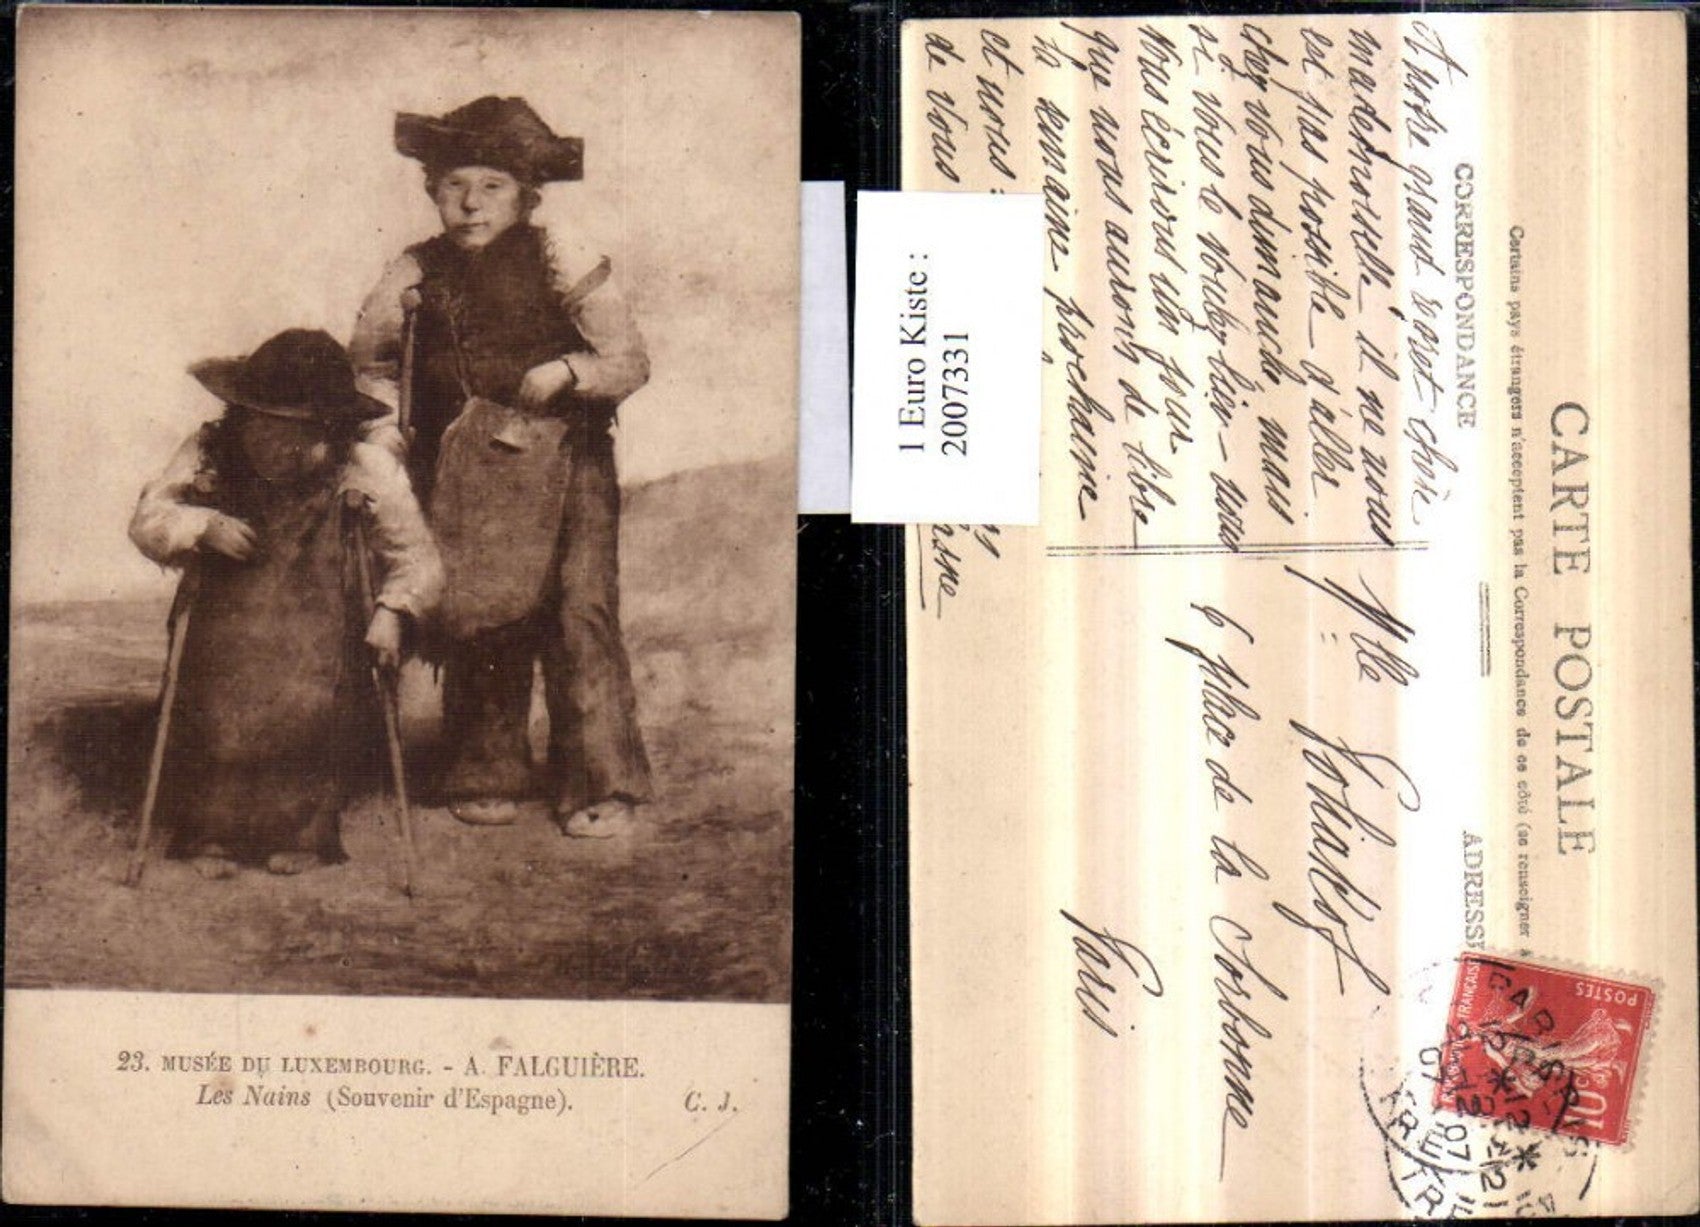 23. MUSÉE DU LUXEMBOURG. - A. FALGUIÈRE.
Les Nains (Souvenir d'Espagne).
C. J.
1 Euro Kiste :
2007331
CARTE POSTALE
Certains pays étrangers n'acceptent pas la Correspondance de ce côté (se renseigner à
CORRESPONDANCE
ADRESSE
A notre grand regret chère
mademoiselle il ne nous
est pas possible d'aller
chez vous dimanche mais
si vous le voulez bien - nous
vous écrirons un jour
que nous aurons de libre
la semaine prochaine
et nous
de vous
Mlle
6 place de la Sorbonne
Paris
POSTES
FRANÇAISE
10
PARIS
07